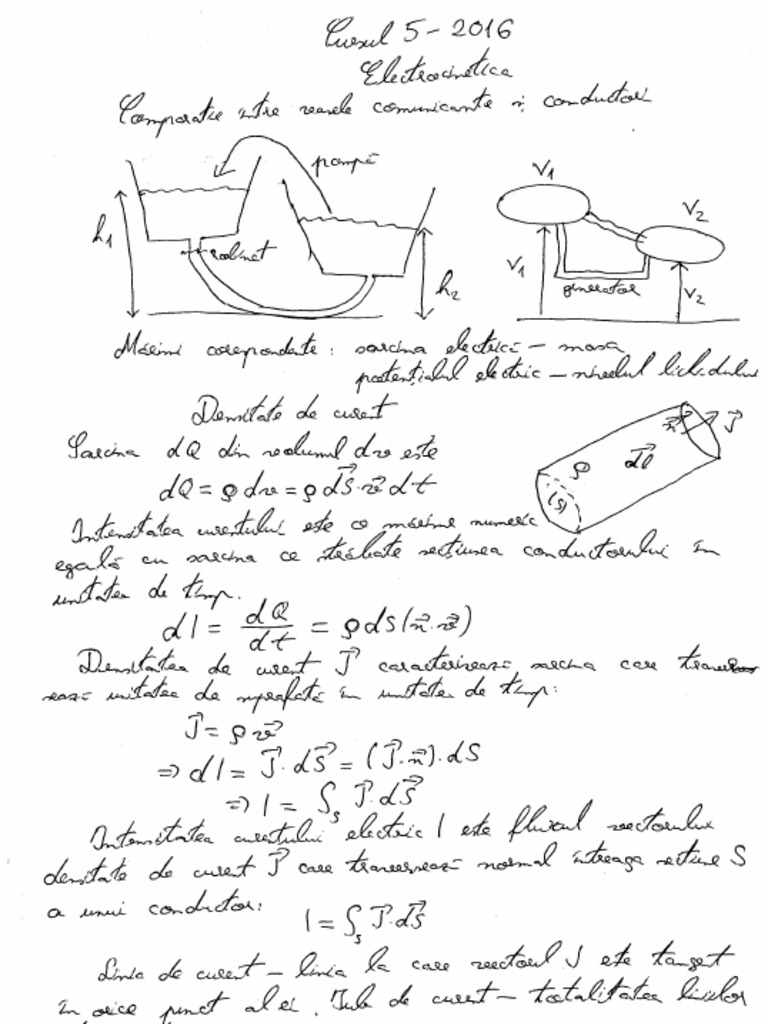 Cursul 5 - 2016
Electrocinetica
Comparatie intre vasele comunicante si conductori
pompă
V1
V2
h1
robinet
h2
V1
generator
V2
Mărimi corespondente: sarcina electrică - masa
potențialul electric - nivelul lichidului
Densitate de curent
Sarcina dQ din volumul dv este
dQ = ρ dv = ρ dS⃗·v⃗ dt
ρ dl⃗ n⃗ J⃗
(S)
Intensitatea curentului este o mărime numeric
egală cu sarcina ce străbate secțiunea conductorului în
unitatea de timp.
dI = dQ/dt = ρ dS(n⃗·v⃗)
Densitatea de curent J⃗ caracterizează sarcina care traver
sează unitatea de suprafață în unitatea de timp:
J⃗ = ρ v⃗
=> dI = J⃗·dS⃗ = (J⃗·n⃗)·dS
=> I = ∫s J⃗·dS⃗
Intensitatea curentului electric I este fluxul vectorului
densitate de curent J⃗ care traversează normal întreaga secțiune S
a unui conductor:
I = ∫s J⃗·dS⃗
Linia de curent - linia la care vectorul J este tangent
în orice punct al ei. Tub de curent - totalitatea liniilor